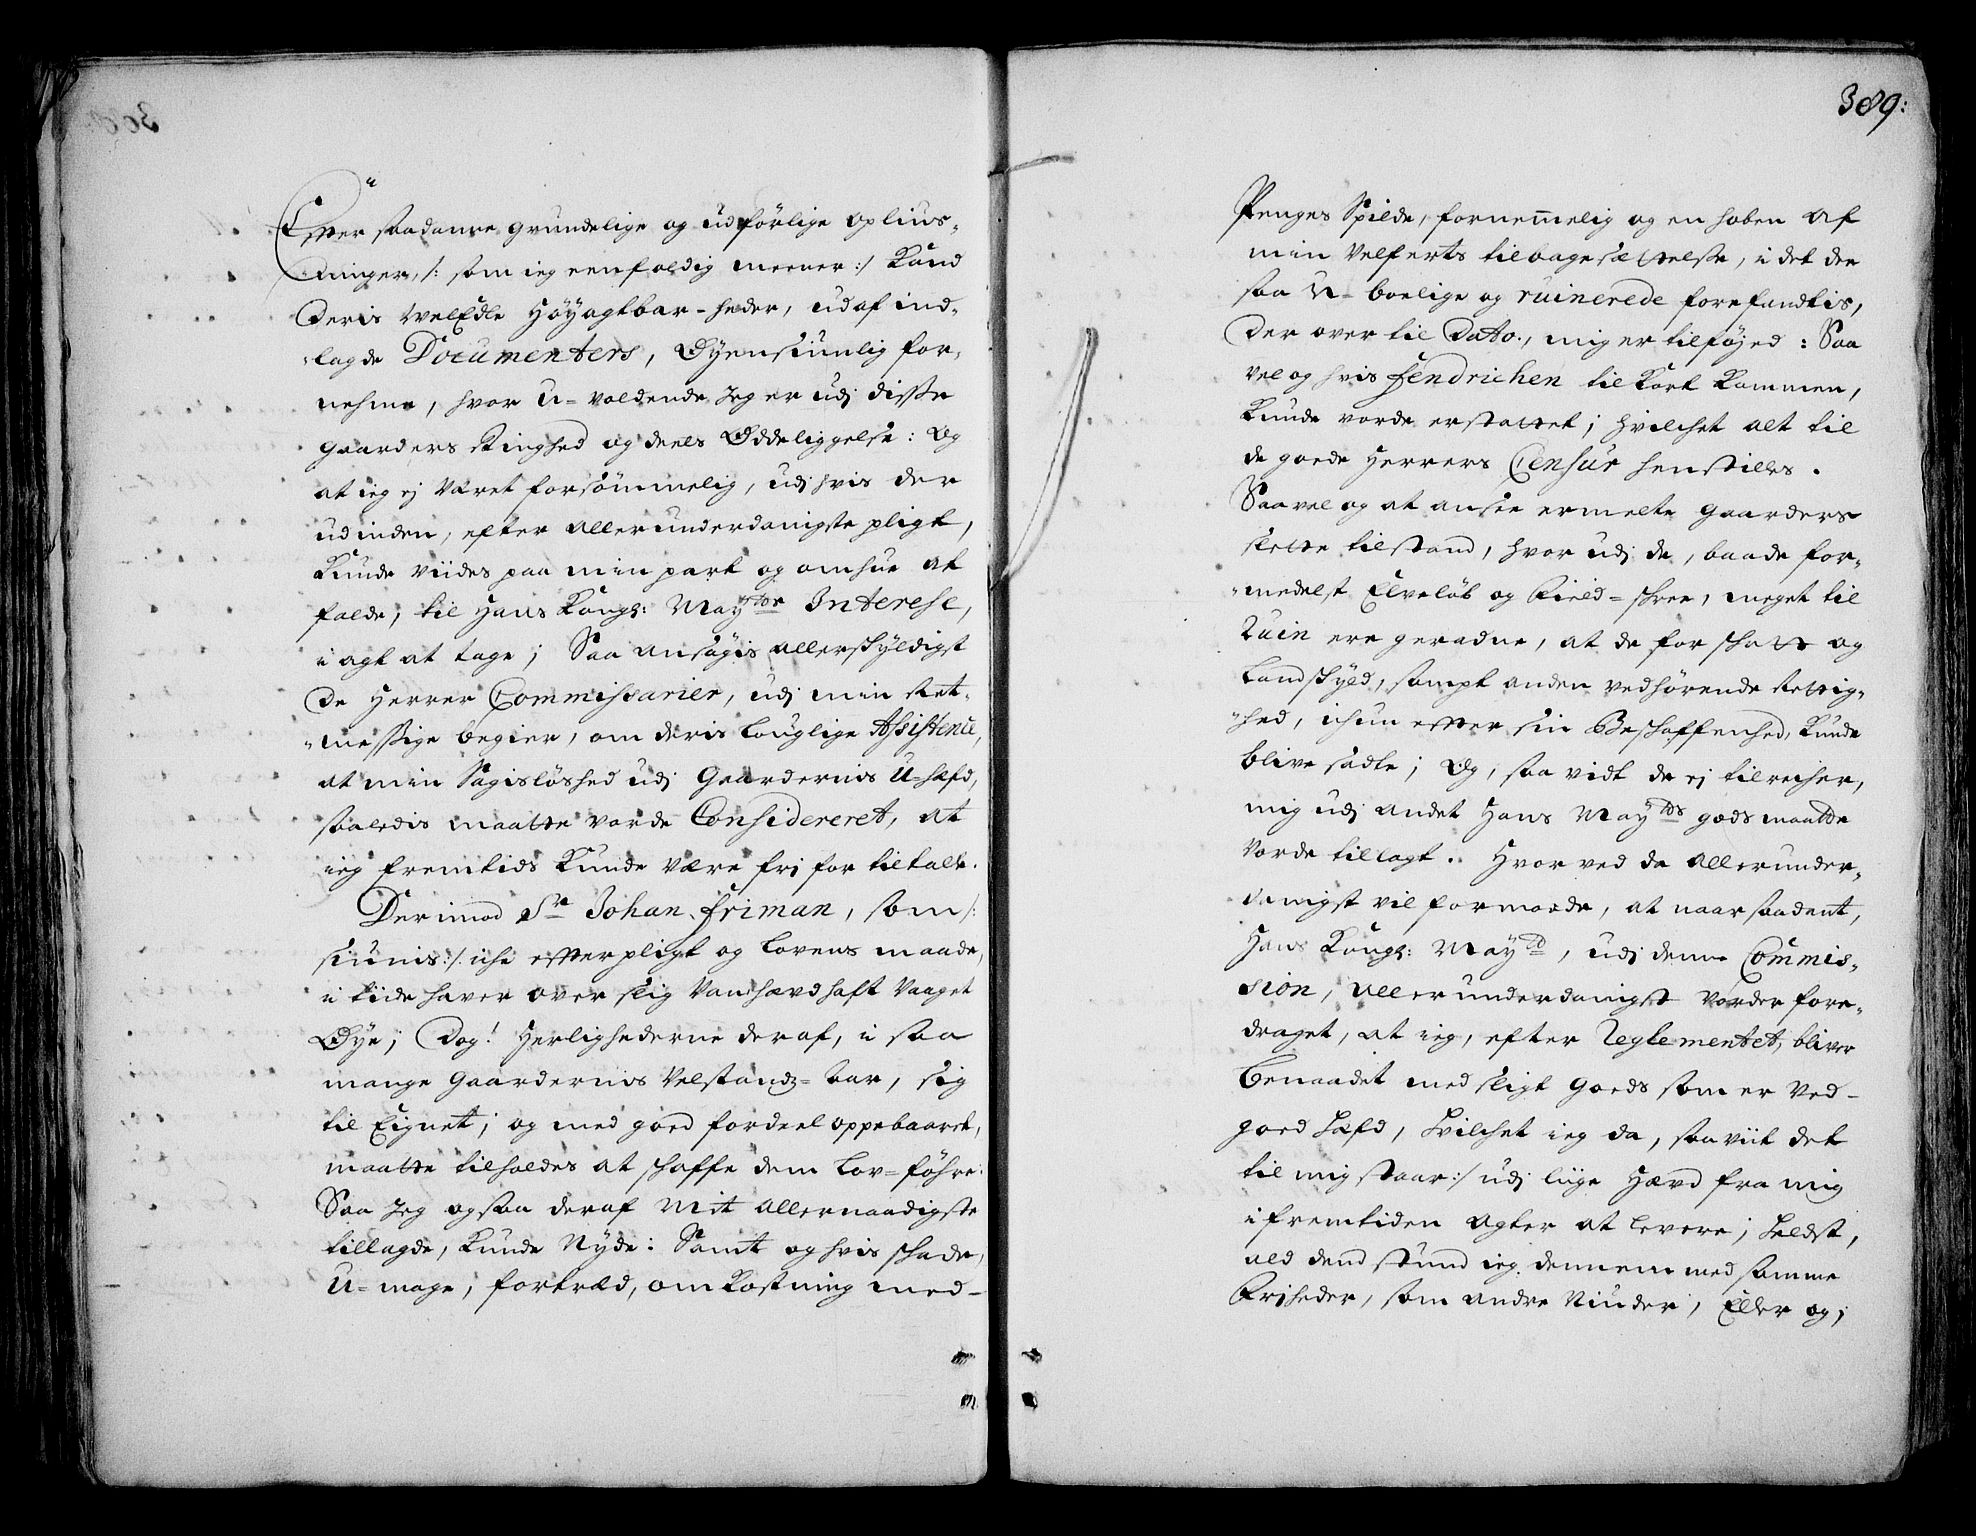 Effter saadanne grundelige og udførlige oplius-
dninger, /: som ieg eenfoldig meener :/ Kand
deris WelEdle Høyagtbar-heder, ud af ind-
lagde Documenters, Øyensiunlig for-
nehme, hvor U-voldende Jeg er udj disse
gaarders Ringhed og deels Ødeliggelse: Og
at ieg ej Været forsømmelig, udj hvis der
udinden, efter allerunderdanigste pligt,
Kunde Viides paa min part og omhue at
falde, til Hans Kongl: Mayttz Interesse,
i agt at tage; Saa ansøgis allerskyldigst
de Herrer Commissarier, udj min Ret-
messige begier, om deris louglige Assistence,
at min Sagisløshed udj Gaardernis U-hæfd,
saaledis maatte vorde Considereret, at
ieg fremtids Kunde Være frj for tiltale.
Derimod Sr Johan Friman, som /:
siunis :/ iche effter pligt og Lovens maade,
i tide haver over slig Vanhævdhaft Vaaget
Øye; Dog! Herlighederne deraf, i saa
mange Gaardernis Velstandz-aar, sig
til Eignet; og med goed fordeel oppebaaret,
maatte tilholdes at schaffe dem Lov-føhre:
Saa Jeg ogsaa deraf Mit allernaadigste
tillagde, Kunde Nyde: Samt og hvis schade,
U-mage, fortræd, omkostning med-
389:
Penges Spilde, fornemmelig og en hoben af
min Velferts tilbagesættelse, i det de
saa U-boelige og ruinerede forefandtis,
der over til Dato, mig er tilføyed: Saa
vel og hvis Fendrichen til Kort Kommen,
Kunde vorde erstattet; hvilchet alt til
de goede Herrers Censur henstilles.
Saavel og at ansee ermelte Gaarders
slette tilstand, hvor udj de, baade for-
medelst Elveløb og Field-schree, meget til
Ruin ere geraadne, at de for schatt og
Landskyld, sampt anden vedhørende Rettig-
hed, ichun effter sin Beschaffenhed, Kunde
blive sadte; Og, saa vidt de ej tilrecher,
mig udj andet Hans Mayttz gods maatte
Vorde tillagt. Hvor ved da allerunder-
danigst vil formoede, at naar saadent,
Hans Kongl: Mayt, udj denne Commis-
sion, allerunderdanigst Vorder fore-
draget, at ieg, efter Reglementet, bliver
Benaadet med sligt Goeds som er Ved-
goed Hæfd, Hvilchet ieg da, saa viit det
til mig staar :/ udj liige Hævd fra mig
i fremtiden agter at levere; Heldst,
all dend stund ieg dennem med samme
Frjheder, som andre Niuder, Eller og,